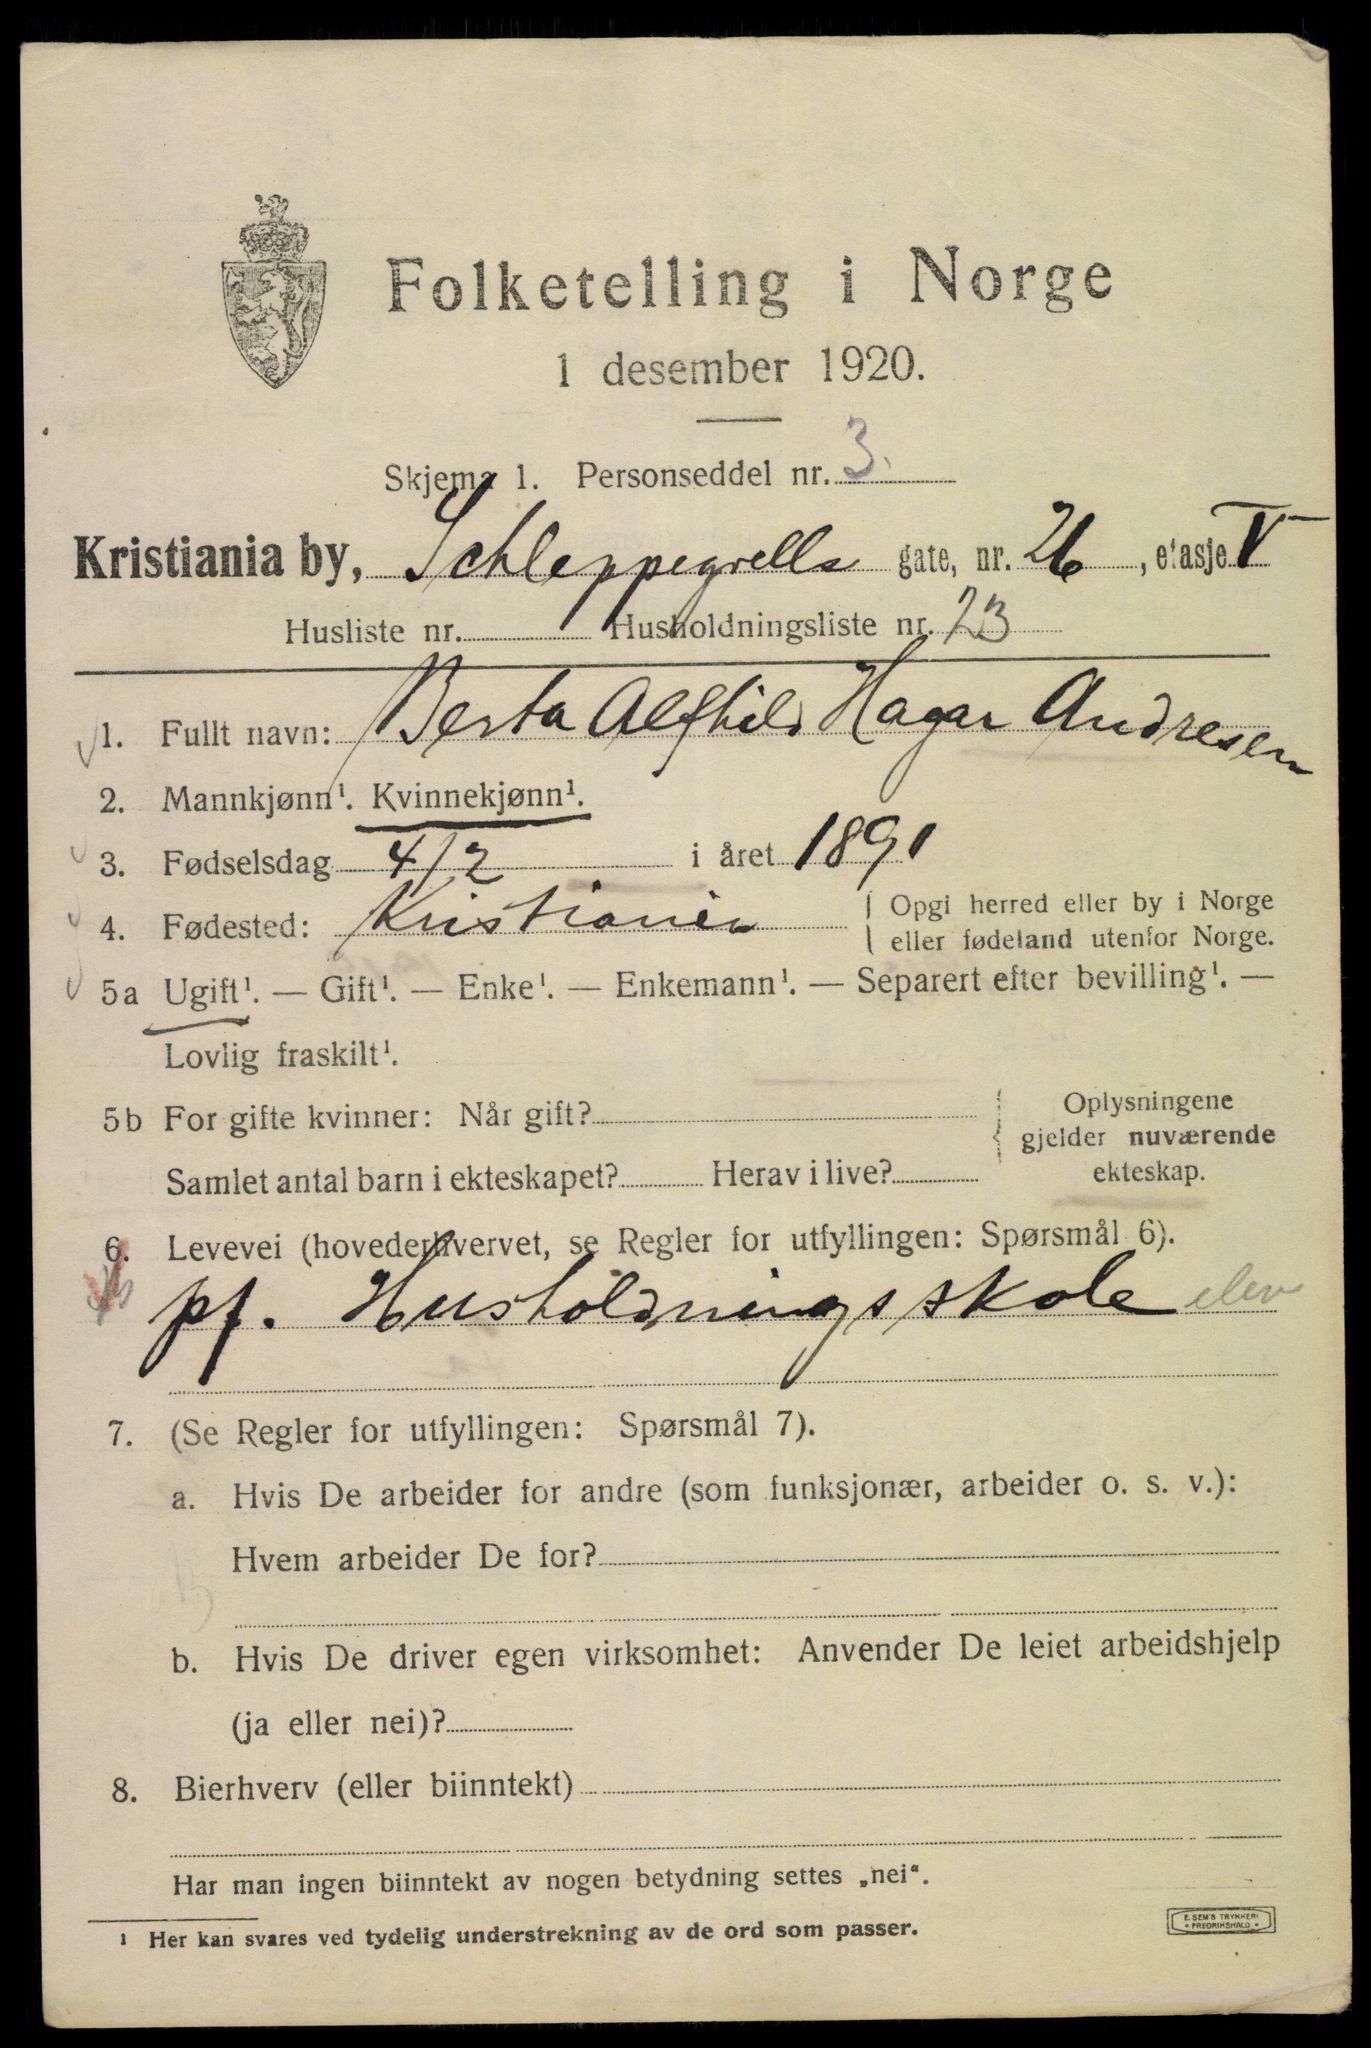 Folketelling i Norge
1 desember 1920.
Skjema 1. Personseddel nr. 3.
Kristiania by, Schleppegrells gate, nr. 26, etasje V
Husliste nr. Husholdningsliste nr. 23
1. Fullt navn: Berta Alfhild Hagar Andresen
2. Mannkjønn¹. Kvinnekjønn¹.
3. Fødselsdag 4/2 i året 1891
4. Fødested: Kristiania
Opgi herred eller by i Norge
eller fødeland utenfor Norge.
5a Ugift¹. — Gift¹. — Enke¹. — Enkemann¹. — Separert efter bevilling¹. —
Lovlig fraskilt¹.
5b For gifte kvinner: Når gift?
Samlet antal barn i ekteskapet? Herav i live?
Oplysningene
gjelder nuværende
ekteskap.
6. Levevei (hovederhvervet, se Regler for utfyllingen: Spørsmål 6).
pf. Husholdningsskole elev
7. (Se Regler for utfyllingen: Spørsmål 7).
a. Hvis De arbeider for andre (som funksjonær, arbeider o. s. v.):
Hvem arbeider De for?
b. Hvis De driver egen virksomhet: Anvender De leiet arbeidshjelp
(ja eller nei)?
8. Bierhverv (eller biinntekt)
Har man ingen biinntekt av nogen betydning settes „nei“.
¹ Her kan svares ved tydelig understrekning av de ord som passer.
E. SEM'S TRYKKERI
* FREDRIKSHALD *